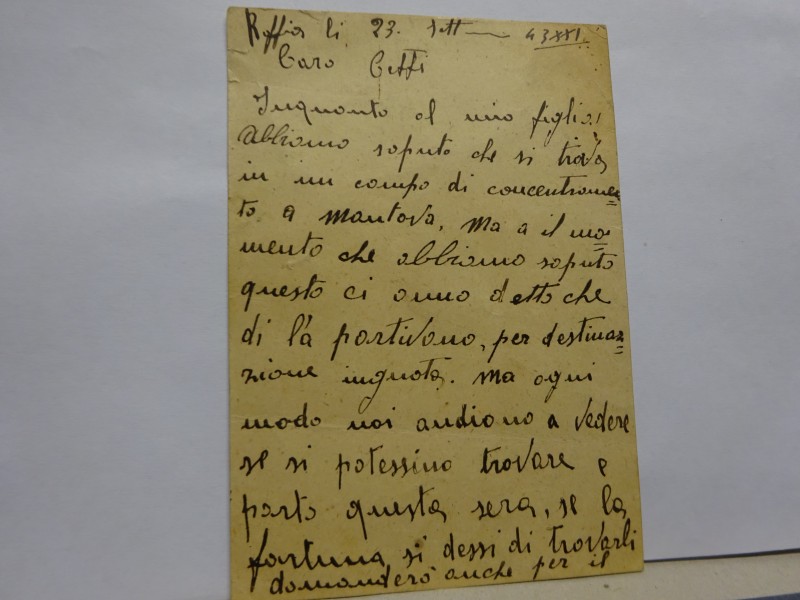 Roffia li 23. sett 43 XXI
Caro Ceffi
Inquanto al mio figlio,
abbiamo saputo che si trova
in un campo di concentramen=
to a Mantova, Ma a il mo=
mento che abbiamo saputo
questo ci anno detto che
di là partivano, per destinaz=
zione ingnota. Ma ogni
modo noi andiono a vedere
se si potessino trovare e
parto questa sera, se la
fortuna si dessi di trovarli
domanderò anche per il